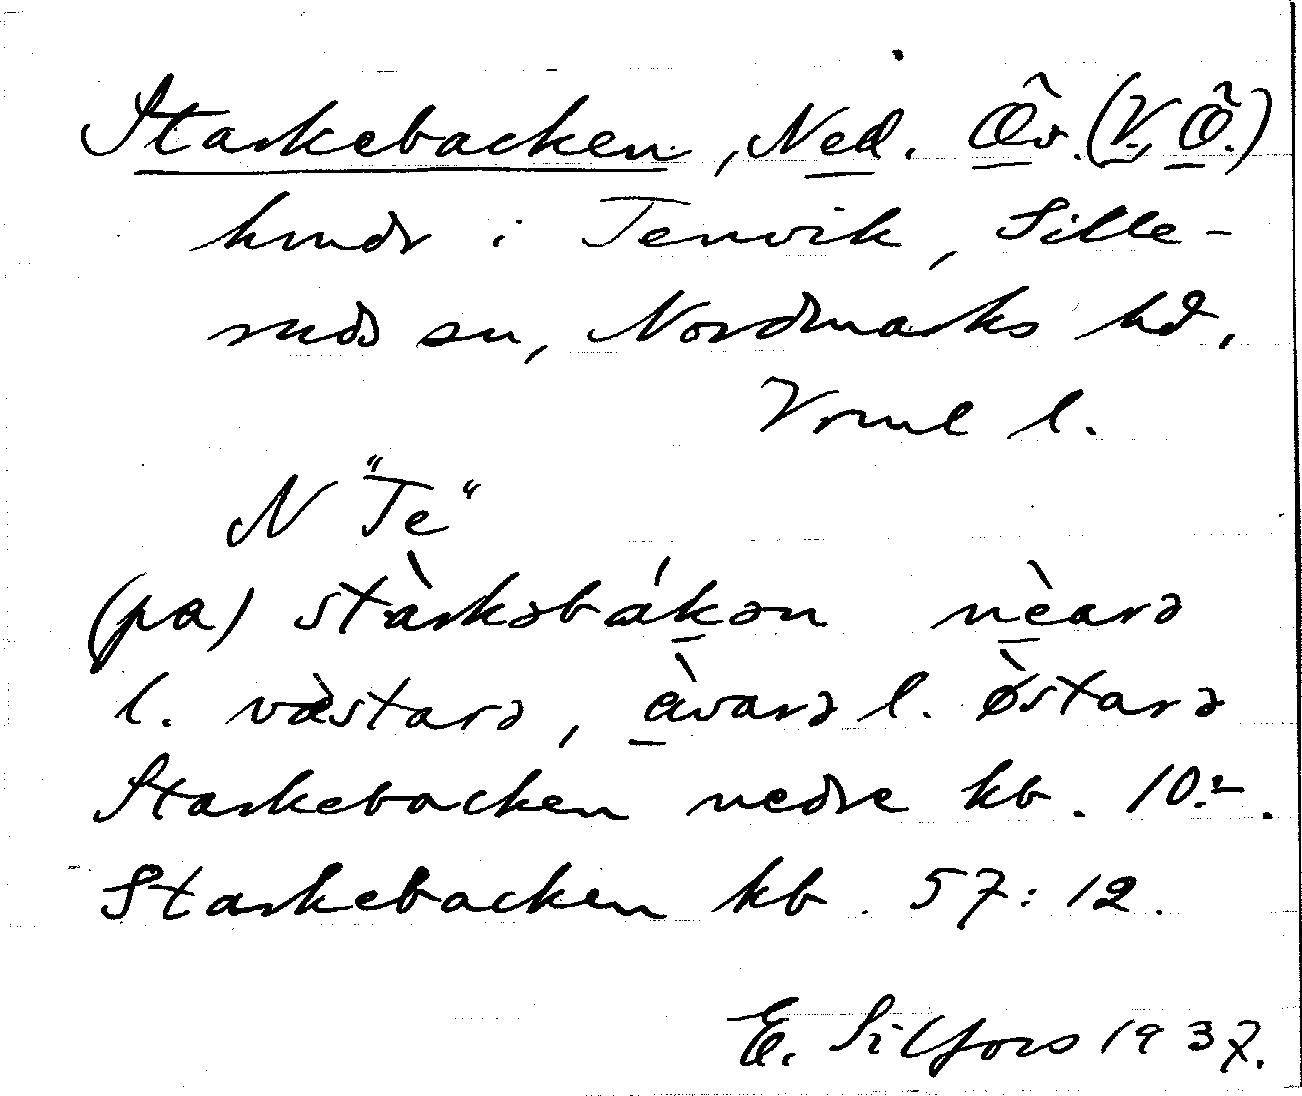 Starkebacken, Ned. Öv. (V. Ö.)
hmdr i Tenvik, Sille-
ruds sn, Nordmarks hd,
Vrml l.
N "Te"
(pa) stàrkəbákən nèarə
l. vàstarə, àvarə l. østarə
Starkebacken nedre kb. 10.2.
Starkebacken kb. 57:12.
E. Silfors 1937.